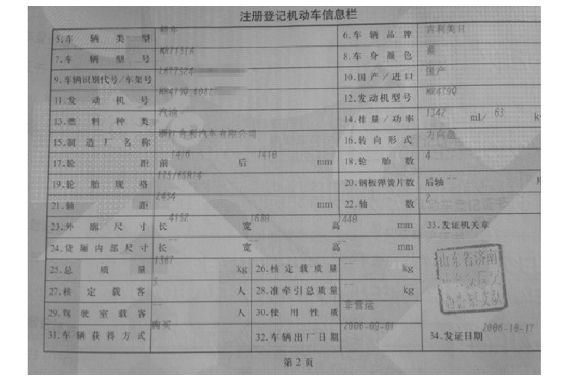 注册登记机动车信息栏
5.车辆类型 轿车 6.车辆品牌 吉利美日
7.车辆型号 MR7131A 8.车身颜色 蓝
9.车辆识别代号/车架号 10.国产/进口 国产
11.发动机号 MR479Q 12.发动机型号 MR479Q
13.燃料种类 汽油 14.排量/功率 1342 ml/ 63
15.制造厂名称 浙江吉利汽车有限公司 16.转向形式 方向盘
17.轮距 前 1416 后 1410 mm 18.轮胎数 4
19.轮胎规格 175/65R14 20.钢板弹簧片数 后轴 --
21.轴距 2434 mm 22.轴数 2
23.外廓尺寸 长 4152 宽 1680 高 1440 mm 33.发证机关章
24.货厢内部尺寸 长 -- 宽 -- 高 -- mm
25.总质量 1387 kg 26.核定载质量 -- kg
27.核定载客 5 人 28.准牵引总质量 -- kg
29.驾驶室载客 -- 人 30.使用性质 非营运
31.车辆获得方式 购买 32.车辆出厂日期 2006-03-01 34.发证日期 2006-10-17
山东省济南
第2页